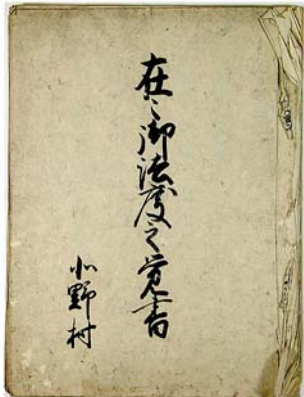 在々御法度之覚書
小野村